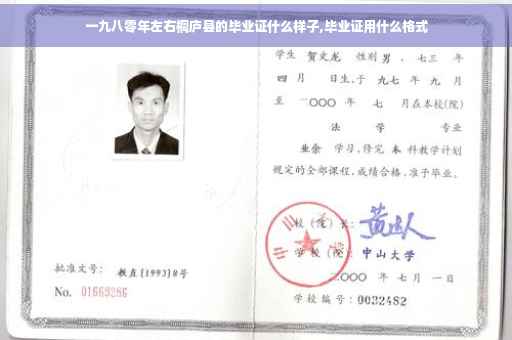 一九八零年左右桐庐县的毕业证什么样子,毕业证用什么格式
学生 贺文龙 性别 男 、七三 年
四 月 日生,于 九七 年 九 月
至 二〇〇〇 年 七 月在本校(院)
法 学 专业
业余 学习,修完 本 科教学计划
规定的全部课程,成绩合格,准予毕业。
校(院)长:
学 校(院): 中山大学
二〇〇〇 年 七 月 一 日
学校编号: 0032482
批准文号: 教直[1993]8号
No. 01669286